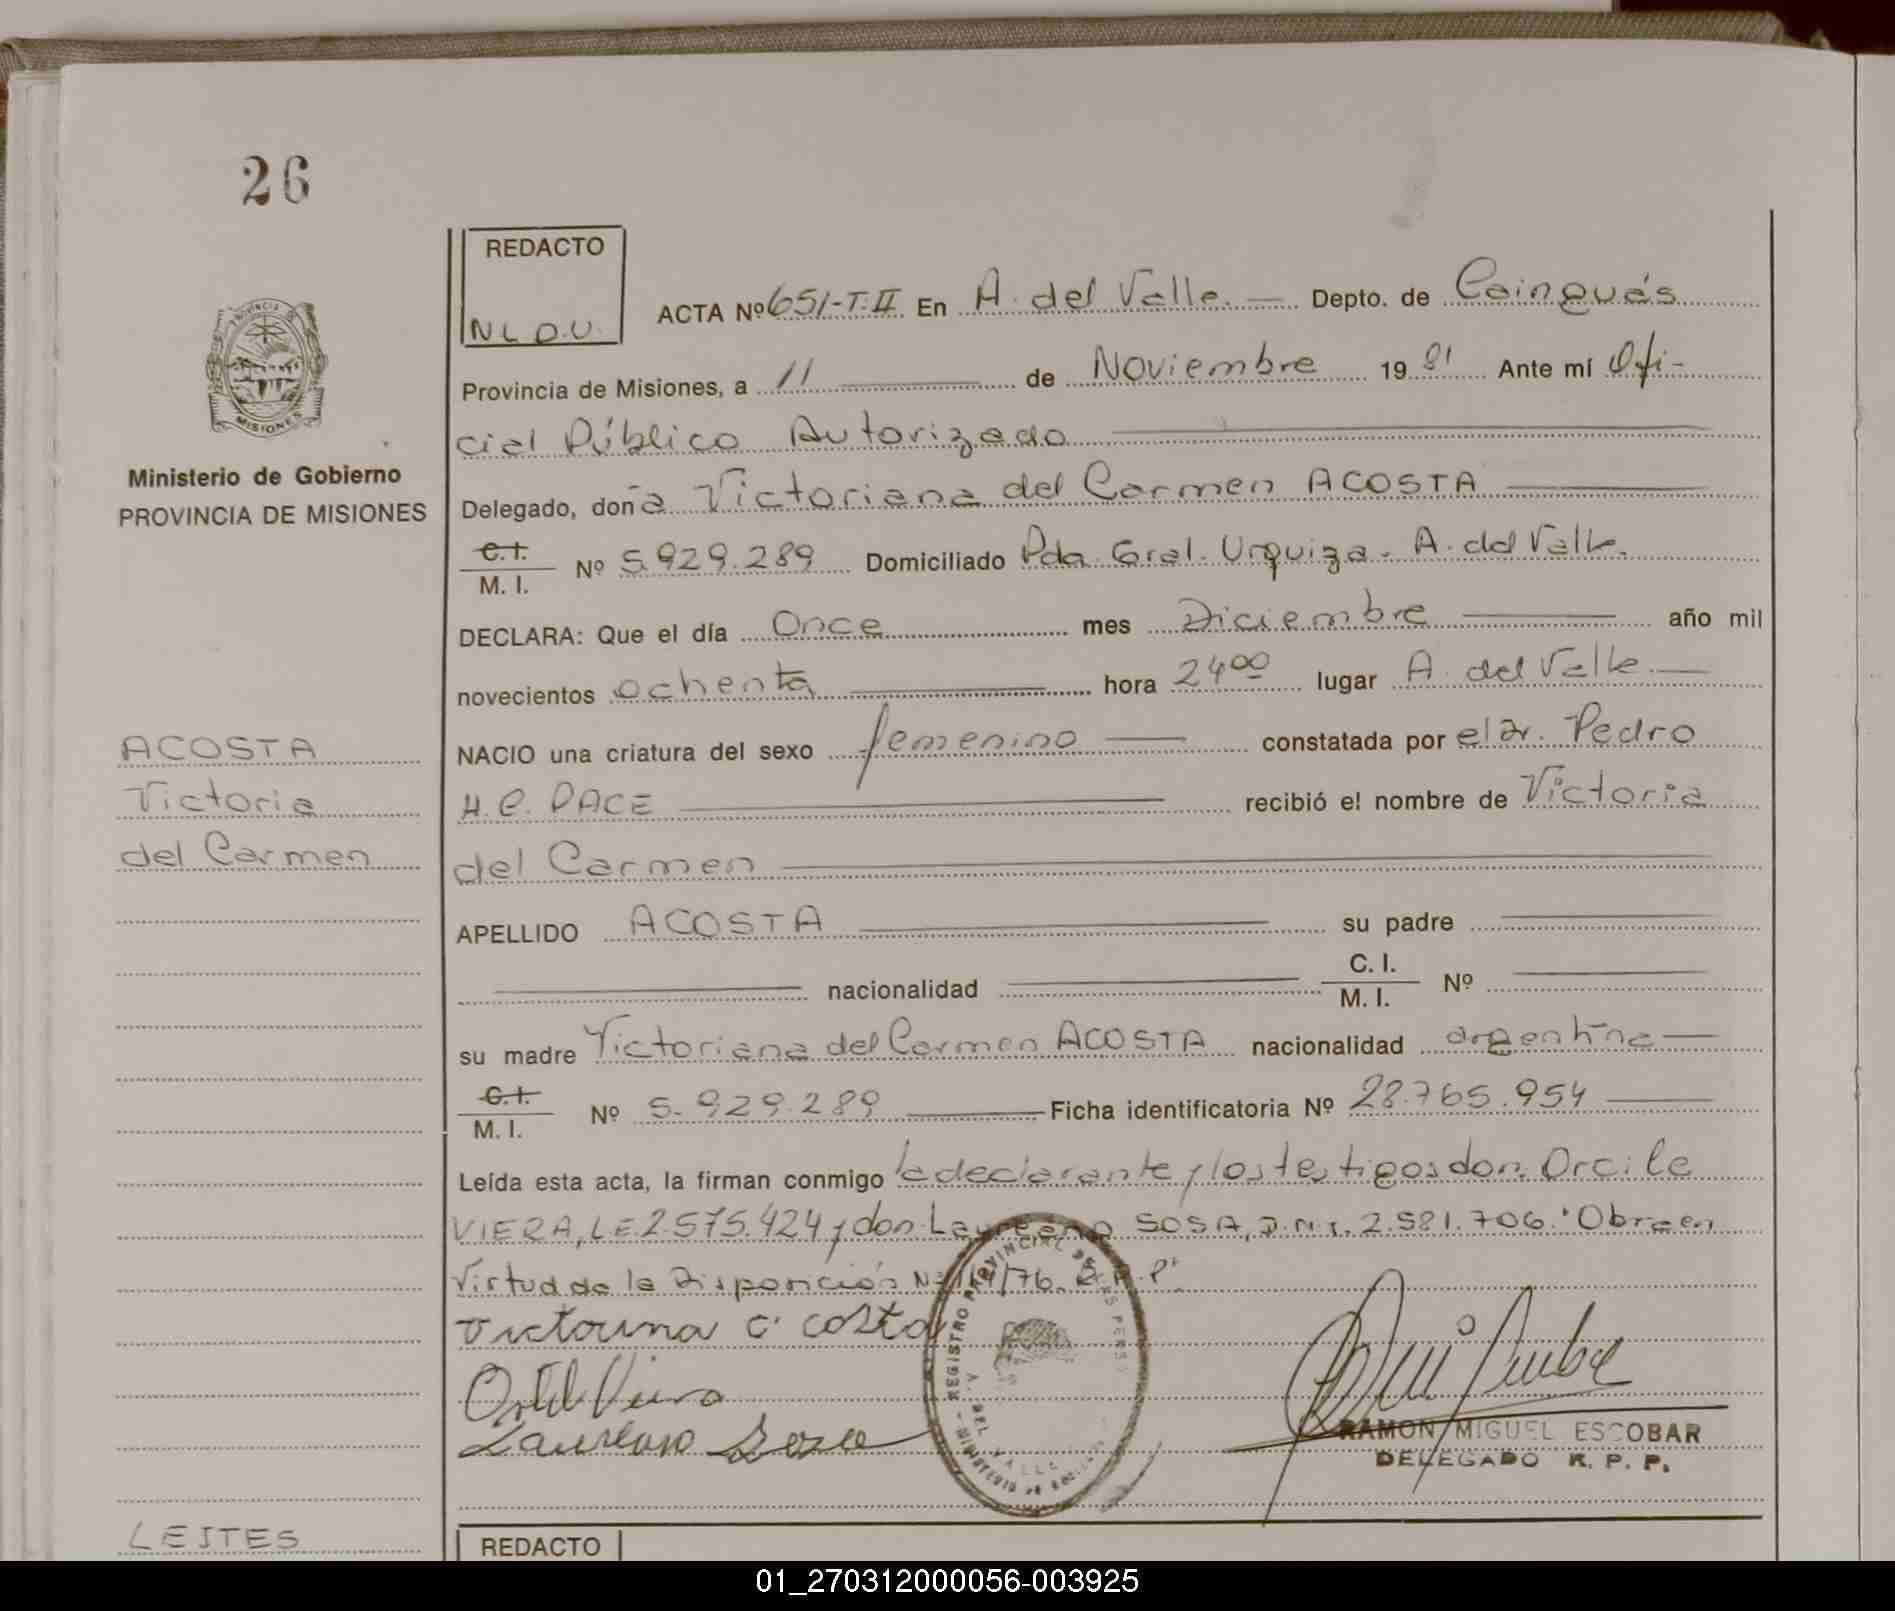 26
REDACTO
N L D.U.
ACTA Nº 651-T.II En A. del Valle. Depto. de Cainguás
Provincia de Misiones, a 11 de Noviembre 19 81 Ante mí Ofi-
cial Público Autorizado
PROVINCIA
MISIONES
Ministerio de Gobierno
PROVINCIA DE MISIONES
Delegado, doña Victoriana del Carmen ACOSTA
C.I.
M. I. Nº 5.929.289 Domiciliado Pda. Gral. Urquiza. A. del Valle.
DECLARA: Que el día Once mes Diciembre año mil
novecientos ochenta hora 24 00 lugar A. del Valle.
ACOSTA
Victoria
del Carmen
NACIO una criatura del sexo femenino constatada por el Dr. Pedro
H. C. PACE recibió el nombre de Victoria
del Carmen
APELLIDO ACOSTA su padre
nacionalidad C. I.
M. I. Nº
su madre Victoriana del Carmen ACOSTA nacionalidad argentina
C.I.
M. I. Nº 5.929.289 Ficha identificatoria Nº 28.765.954
Leída esta acta, la firman conmigo la declarante y los testigos don. Orcile
VIERA, LE 2.575.424 y don Laureano SOSA, D.N.I. 2.581.706. "Obra en
Virtud de la Disposición Nº /76.
REGISTRO PROVINCIAL DE LAS PERS
A. V. DEL VALLE
MINISTERIO DE
Laureano Sosa
RAMON MIGUEL ESCOBAR
DELEGADO R. P. P.
LEITES
REDACTO
01_270312000056-003925